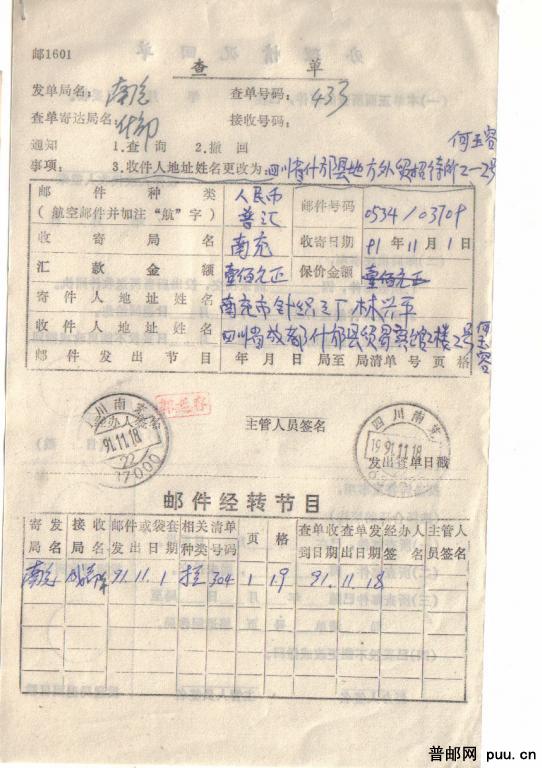 邮1601
查 单
发单局名：南充 查单号码：433
查单寄达局名：什邡 接收号码：
何玉容
通知 1.查询 2.撤回
事项： 3.收件人地址姓名更改为：四川省什邡县地方外贸招待所2-2号
邮件种类 人民币 邮件号码 0534/03709
（航空邮件并加注“航”字） 普汇
收寄局名 南充 收寄日期 91年11月1日
汇款金额 壹佰元正 保价金额 壹佰元正
寄件人地址姓名 南充市针织三厂 林兴平
收件人地址姓名 四川省成都什邡县贸易宾馆2楼2号何玉容
邮件发出节目 年月日局至局清单号页格
四川南充
经办人签
91.11.18
22
主管人员签名
四川南充
1991.11.18
发出查单日戳
邮件经转节目
寄发局名 接收局名 邮件或袋套发出日期 相关清单种类号码 页 格 查单收到日期 查单发出日期 经办人签名 主管人员签名
南充 91.11.1 304 1 19 91.11.18
普邮网 puu.cn